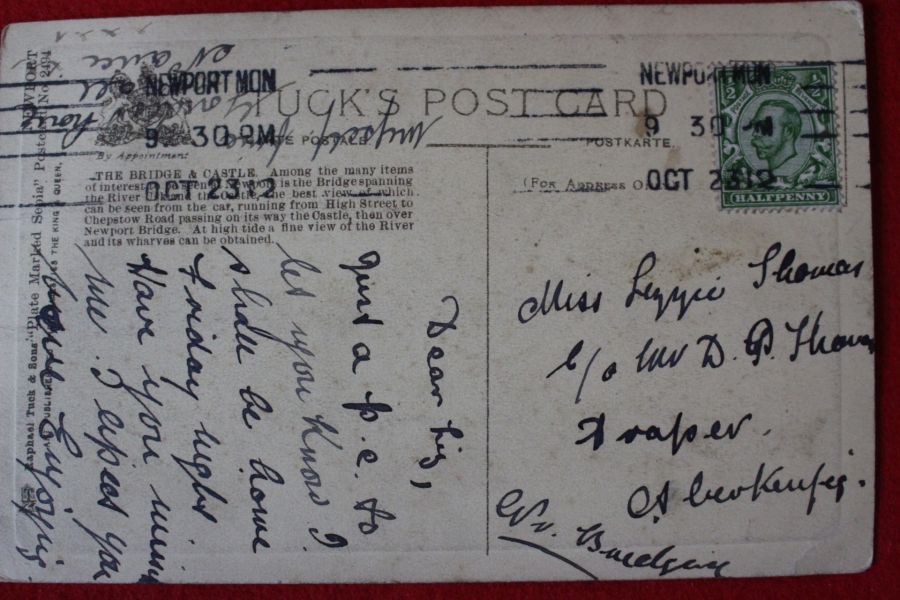 NEWPORT MON
9 30 PM
OCT 23 12
NEWPORT MON
9 30 M
OCT 23 12
½ ½
HALFPENNY
TUCK'S POST CARD
CARTE POSTALE
POSTKARTE
By Appointment
(FOR ADDRESS O
THE BRIDGE & CASTLE. Among the many items
of interest seen Newport is the Bridge spanning
the River the Castle, the best view of which
can be seen from the car, running from High Street to
Chepstow Road passing on its way the Castle, then over
Newport Bridge. At high tide a fine view of the River
and its wharves can be obtained.
NEWPORT
Raphael Tuck & Sons' "Plate Marked Sepia" Postcard No. 2494
ART PUBLISHERS THE KING & QUEEN.
Dear Liz,
Just a p.c. to
let you know I
shall be home
Friday night.
Have you
me. I expect you
Enjoying
Miss Lizzie Thomas
c/o Mr D. P. Thomas
Draper.
Aberkenfig.
Nr. Bridgend